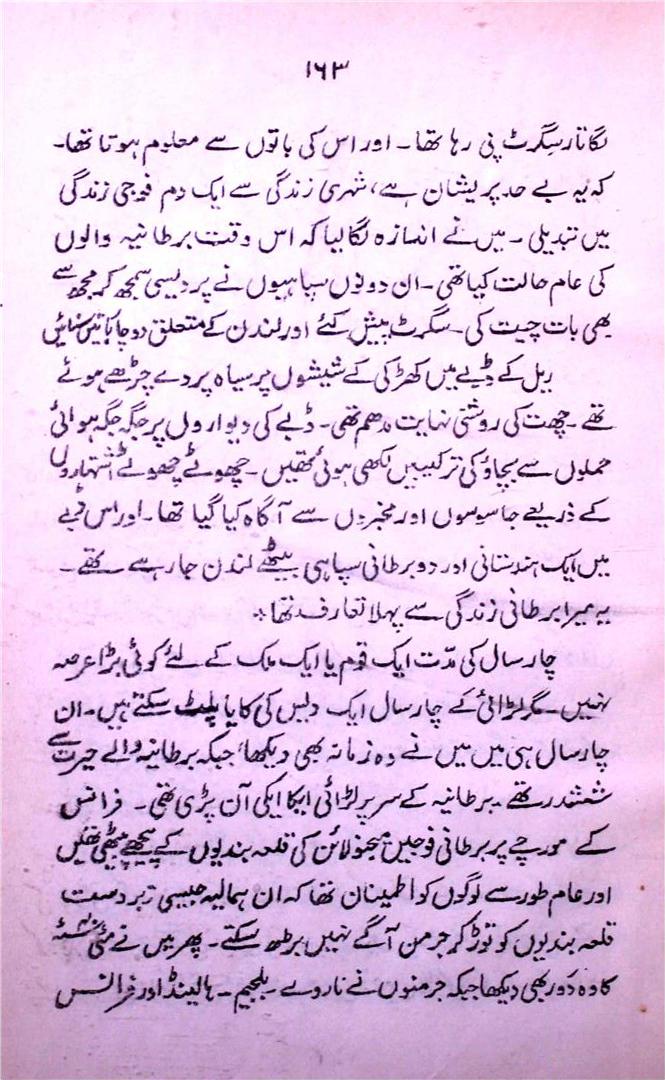 ۱۶۳
لگاتار سگرٹ پی رہا تھا۔ اور اس کی باتوں سے معلوم ہوتا تھا۔
کہ یہ بے حد پریشان ہے، شہری زندگی سے ایک دم فوجی زندگی
میں تبدیلی۔ میں نے اندازہ لگا لیا کہ اس وقت برطانیہ والوں
کی عام حالت کیا تھی۔ ان دونوں سپاہیوں نے پردیسی سمجھ کر مجھ سے
بھی بات چیت کی۔ سگرٹ پیش کئے اور لندن کے متعلق دو چار باتیں سنائیں
ریل کے ڈبے میں کھڑکی کے شیشوں پر سیاہ پردے چڑھے ہوئے
تھے۔ چھت کی روشنی نہایت مدھم تھی۔ ڈبے کی دیواروں پر جگہ جگہ ہوائی
حملوں سے بچاؤ کی ترکیبیں لکھی ہوئی تھیں۔ چھوٹے چھوٹے اشتہاروں
کے ذریعے جاسوسوں اور مخبروں سے آگاہ کیا گیا تھا۔ اور اس ڈبے
میں ایک ہندستانی اور دو برطانی سپاہی بیٹھے لندن جا رہے تھے۔
یہ میرا برطانی زندگی سے پہلا تعارف تھا٭
چار سال کی مدّت ایک قوم یا ایک ملک کے لئے کوئی بڑا عرصہ
نہیں۔ مگر لڑائی کے چار سال ایک دیس کی کایا پلٹ سکتے ہیں۔ ان
چار سال ہی میں میں نے وہ زمانہ بھی دیکھا، جبکہ برطانیہ والے حیرت سے
ششدر تھے۔ برطانیہ کے سر پر لڑائی ایکا ایکی آن پڑی تھی۔ فرانس
کے مورچے پر برطانی فوجیں میجنو لائن کی قلعہ بندیوں کے پیچھے بیٹھی تھیں
اور عام طور سے لوگوں کو اطمینان تھا کہ ان ہمالیہ جیسی زبردست
قلعہ بندیوں کو توڑ کر جرمن آگے نہیں بڑھ سکتے۔ پھر میں نے مئی
کا وہ دَور بھی دیکھا جبکہ جرمنوں نے ناروے۔ بلجیم۔ ہالینڈ اور فرانس